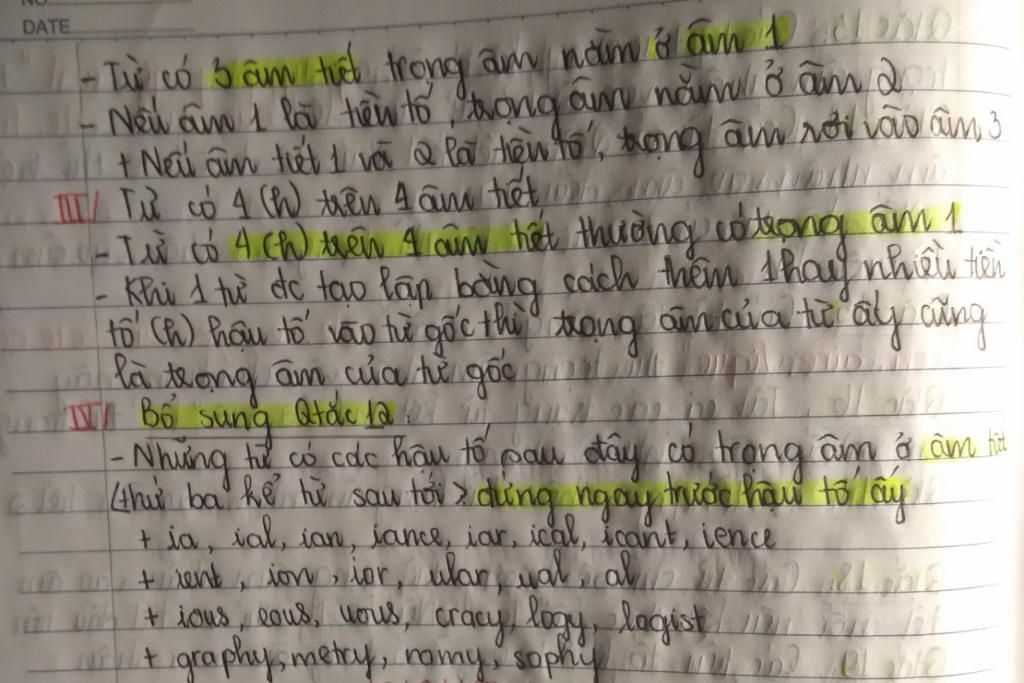 NO.
DATE
- Từ có 3 âm tiết trọng âm nằm ở âm 1
- Nếu âm 1 là tiền tố, trọng âm nằm ở âm 2
+ Nếu âm tiết 1 và 2 là tiền tố, trọng âm rơi vào âm 3
III/ Từ có 4 (h) trên 4 âm tiết
- Từ có 4 (h) trên 4 âm tiết thường có trọng âm 1
- Khi 1 từ đc tạo lập bằng cách thêm 1 hay nhiều tiền
tố (h) hậu tố vào từ gốc thì trọng âm của từ ấy cũng
là trọng âm của từ gốc
IV/ Bổ sung Qtắc 12.
- Những từ có các hậu tố sau đây có trọng âm ở âm tiết
(thứ ba kể từ sau tới > đứng ngay trước hậu tố ấy
+ ia, ial, ian, iance, iar, ical, icant, ience
+ ient, ion, ior, ular, ual, al
+ ious, eous, uous, cracy, logy, logist
+ graphy, metry, nomy, sophy